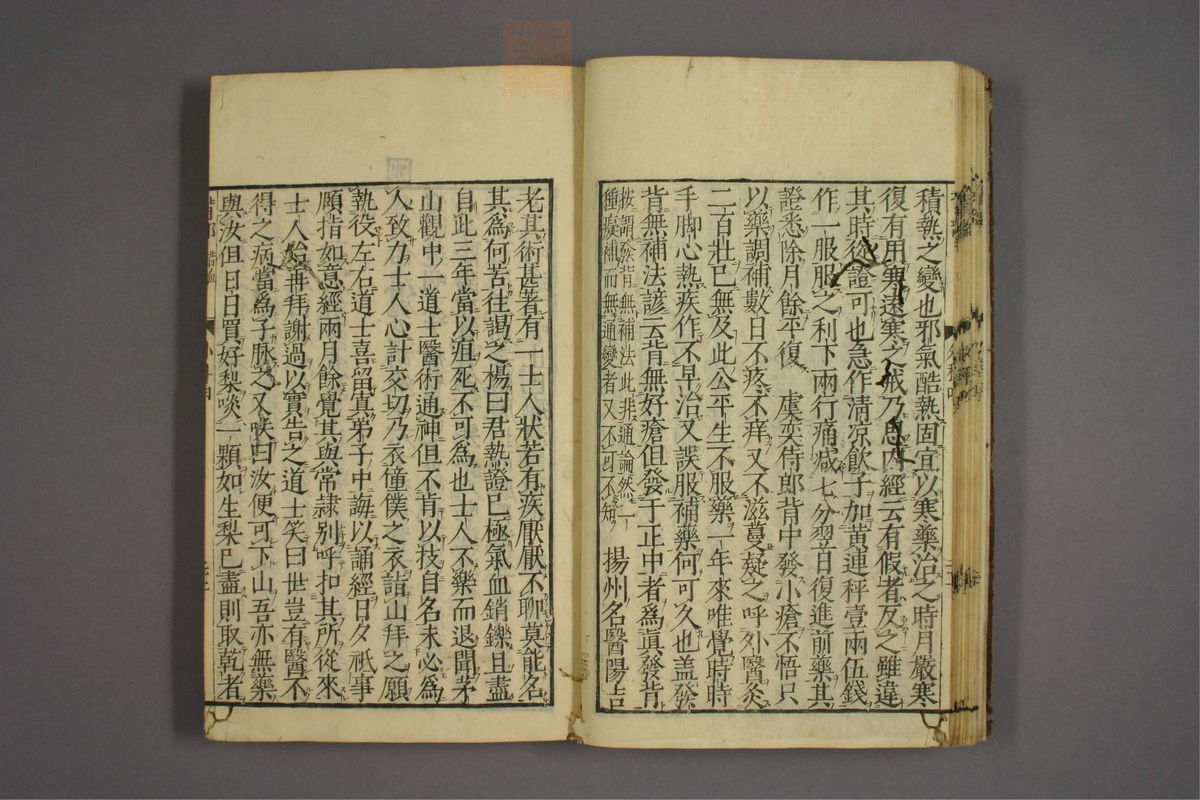 積熱之變也邪氣酷熱固宜以寒藥治之時月嚴寒
復有用寒遠寒之戒乃思内經云有假者反之雖違
其時從證可也急作清凉飲子如黄連秤壹兩伍錢
作一服服之利下兩行痛减七分翌日復進前藥其
證悉除月餘平復　虞奕侍郎背中發小瘡不悟只
以藥調補數日不疼不痒又不滋蔓疑之呼外醫灸
二百壯已無及此公平生不服藥一年來唯覺時時
手脚心熱疾作不早治又誤服補藥何可久也盖發
背無補法諺云背無好瘡但發于正中者爲眞發背
按謂發背無補法此非通論然一
種癡補而無通變者又不可不知
揚州名醫陽吉
老其術甚著有一士人狀若有疾厭厭不聊莫能名
其爲何苦往謁之楊曰君熱證已極氣血銷鑠且盡
自此三年當以疽死不可爲也士人不樂而退聞茅
山觀中一道士醫術通神但不肯以技自名未必爲
人致力士人心計交切乃衣僮僕之衣詣山拜之願
執役左右道士喜留眞弟子中誨以誦經日夕祇事
願指如意經兩月餘覺其與常隷别呼扣其所從來
士人始再拜謝過以實告之道士笑曰世豈有醫不
得之病當爲子脉之又𥬇曰汝便可下山吾亦無藥
與汝但日日買好梨啖一顆如生梨已盡則取乾者